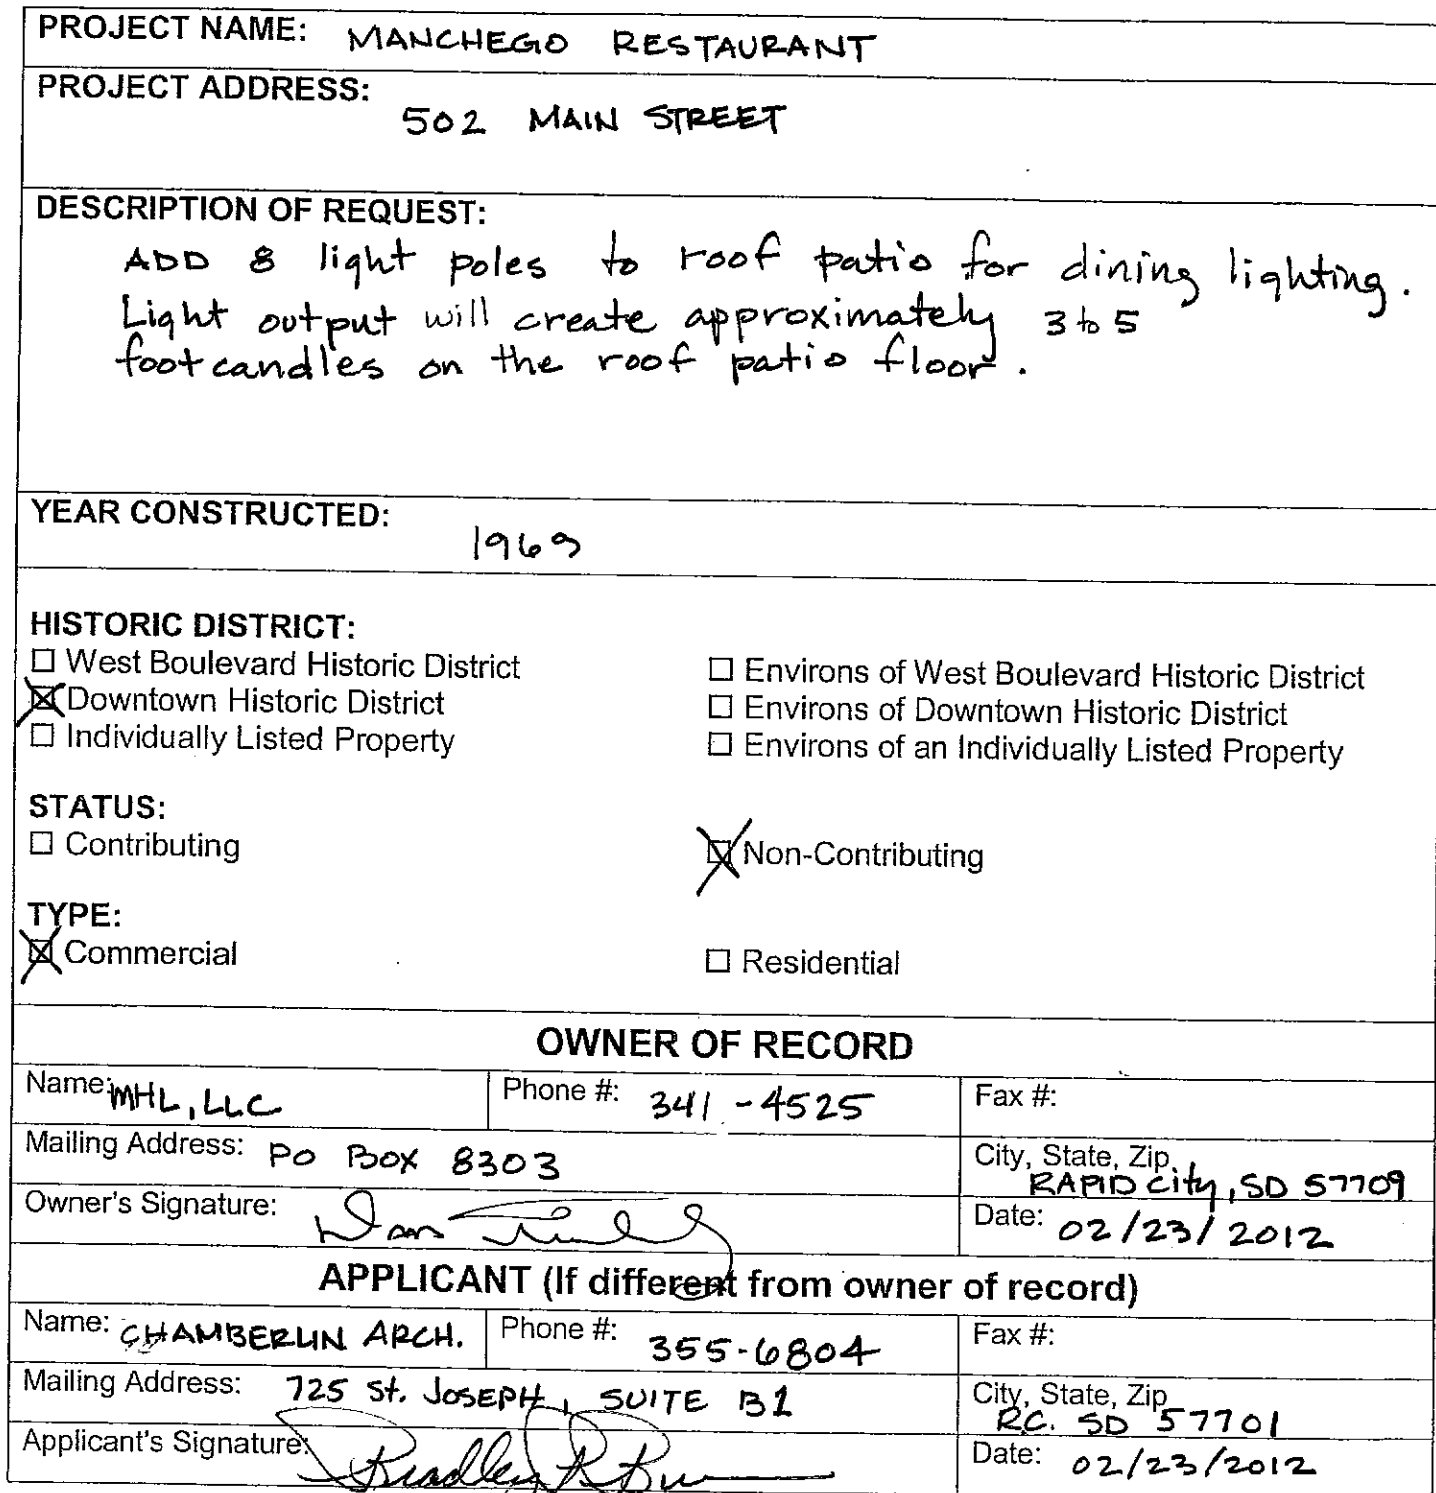 PROJECT NAME: MANCHEGO RESTAURANT
PROJECT ADDRESS:
502 MAIN STREET
DESCRIPTION OF REQUEST:
ADD 8 light poles to roof patio for dining lighting.
Light output will create approximately 3 to 5
footcandles on the roof patio floor.
YEAR CONSTRUCTED:
1969
HISTORIC DISTRICT:
☐ West Boulevard Historic District ☐ Environs of West Boulevard Historic District
☒ Downtown Historic District ☐ Environs of Downtown Historic District
☐ Individually Listed Property ☐ Environs of an Individually Listed Property
STATUS:
☐ Contributing ☒ Non-Contributing
TYPE:
☒ Commercial ☐ Residential
OWNER OF RECORD
Name: MHL, LLC Phone #: 341-4525 Fax #:
Mailing Address: PO Box 8303 City, State, Zip RAPID City, SD 57709
Owner's Signature: Dan Date: 02/23/2012
APPLICANT (If different from owner of record)
Name: CHAMBERLIN ARCH. Phone #: 355-6804 Fax #:
Mailing Address: 725 St. JOSEPH, SUITE B1 City, State, Zip R.C. SD 57701
Applicant's Signature: Bradley R Date: 02/23/2012